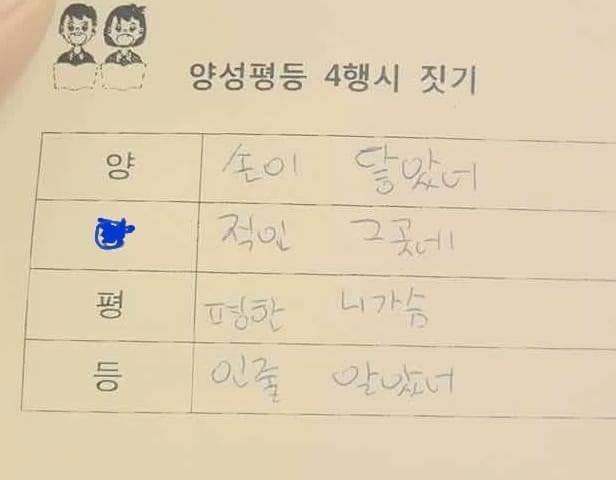 양성평등 4행시 짓기
양 손이 닿았너
적인 그곳에
평 평한 니가슴
등 인줄 알았너